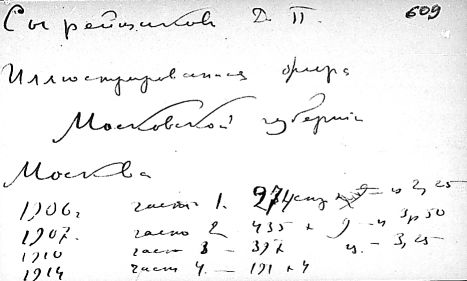 Сырейщиков Д. П. 609
Иллюстрированная флора
Московской губернии
Москва
1906. часть 1. 274 стр ц 2,25
1907. часть 2 435 + 9 – ц 3р50
1910 част 3 – 397 ц. – 3,25
1914 част 4. – 191 + 4